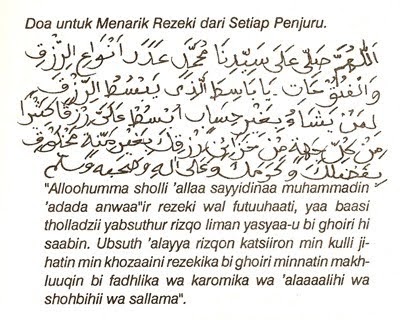 Doa untuk Menarik Rezeki dari Setiap Penjuru.
اَللّٰهُمَّ صَلِّى عَلَى سَيِّدِنَا مُحَمَّدٍ عَدَدَ اَنْوَاعِ الرِّزْقِ
وَالْفُتُوْحَاتِ. يَا بَاسِطَ الَّذِى يَبْسُطُ الرِّزْقَ
لِمَنْ يَشَاءُ بِغَيْرِ حِسَابٍ اُبْسُطْ عَلَىَّ رِزْقًا كَثِيْرًا
مِنْ كُلِّ جِهَةٍ مِنْ خَزَائِنِ رِزْقِكَ بِغَيْرِ مِنَّةِ مَخْلُوْقٍ
بِفَضْلِكَ وَكَرَمِكَ وَعَلَى اٰلِهِ وَصَحْبِهِ وَسَلَّمَ
"Alloohumma sholli 'allaa sayyidinaa muhammadin
'adada anwaa"ir rezeki wal futuuhaati, yaa baasi
tholladzii yabsuthur rizqo liman yasyaa-u bi ghoiri hi
saabin. Ubsuth 'alayya rizqon katsiiron min kulli ji-
hatin min khozaaini rezekika bi ghoiri minnatin makh-
luuqin bi fadhlika wa karomika wa 'alaaaalihi wa
shohbihii wa sallama".